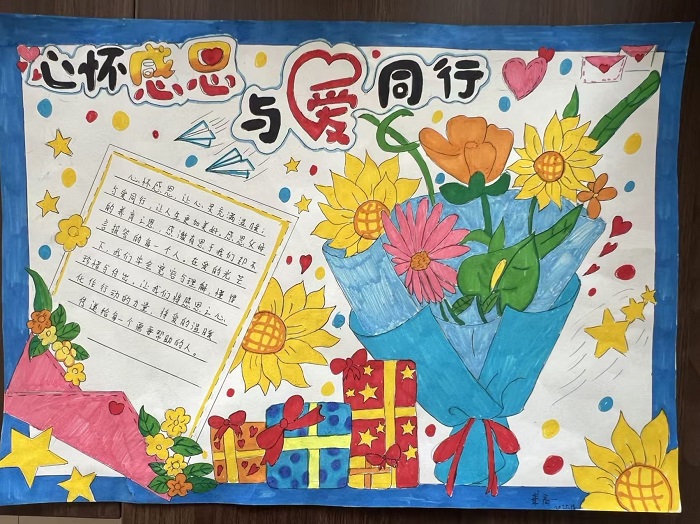 心怀感恩
与爱同行
心怀感恩,让心灵充满温暖;
与爱同行,让人生更加美好。感恩父母
的养育之恩,感激有恩于我们却不
言报答的每一个人。在爱的光芒
下,我们学会宽容与理解,懂得
珍惜与付出。让我们将感恩之心
化作行动的力量,将爱的温暖
传递给每一个需要帮助的人。